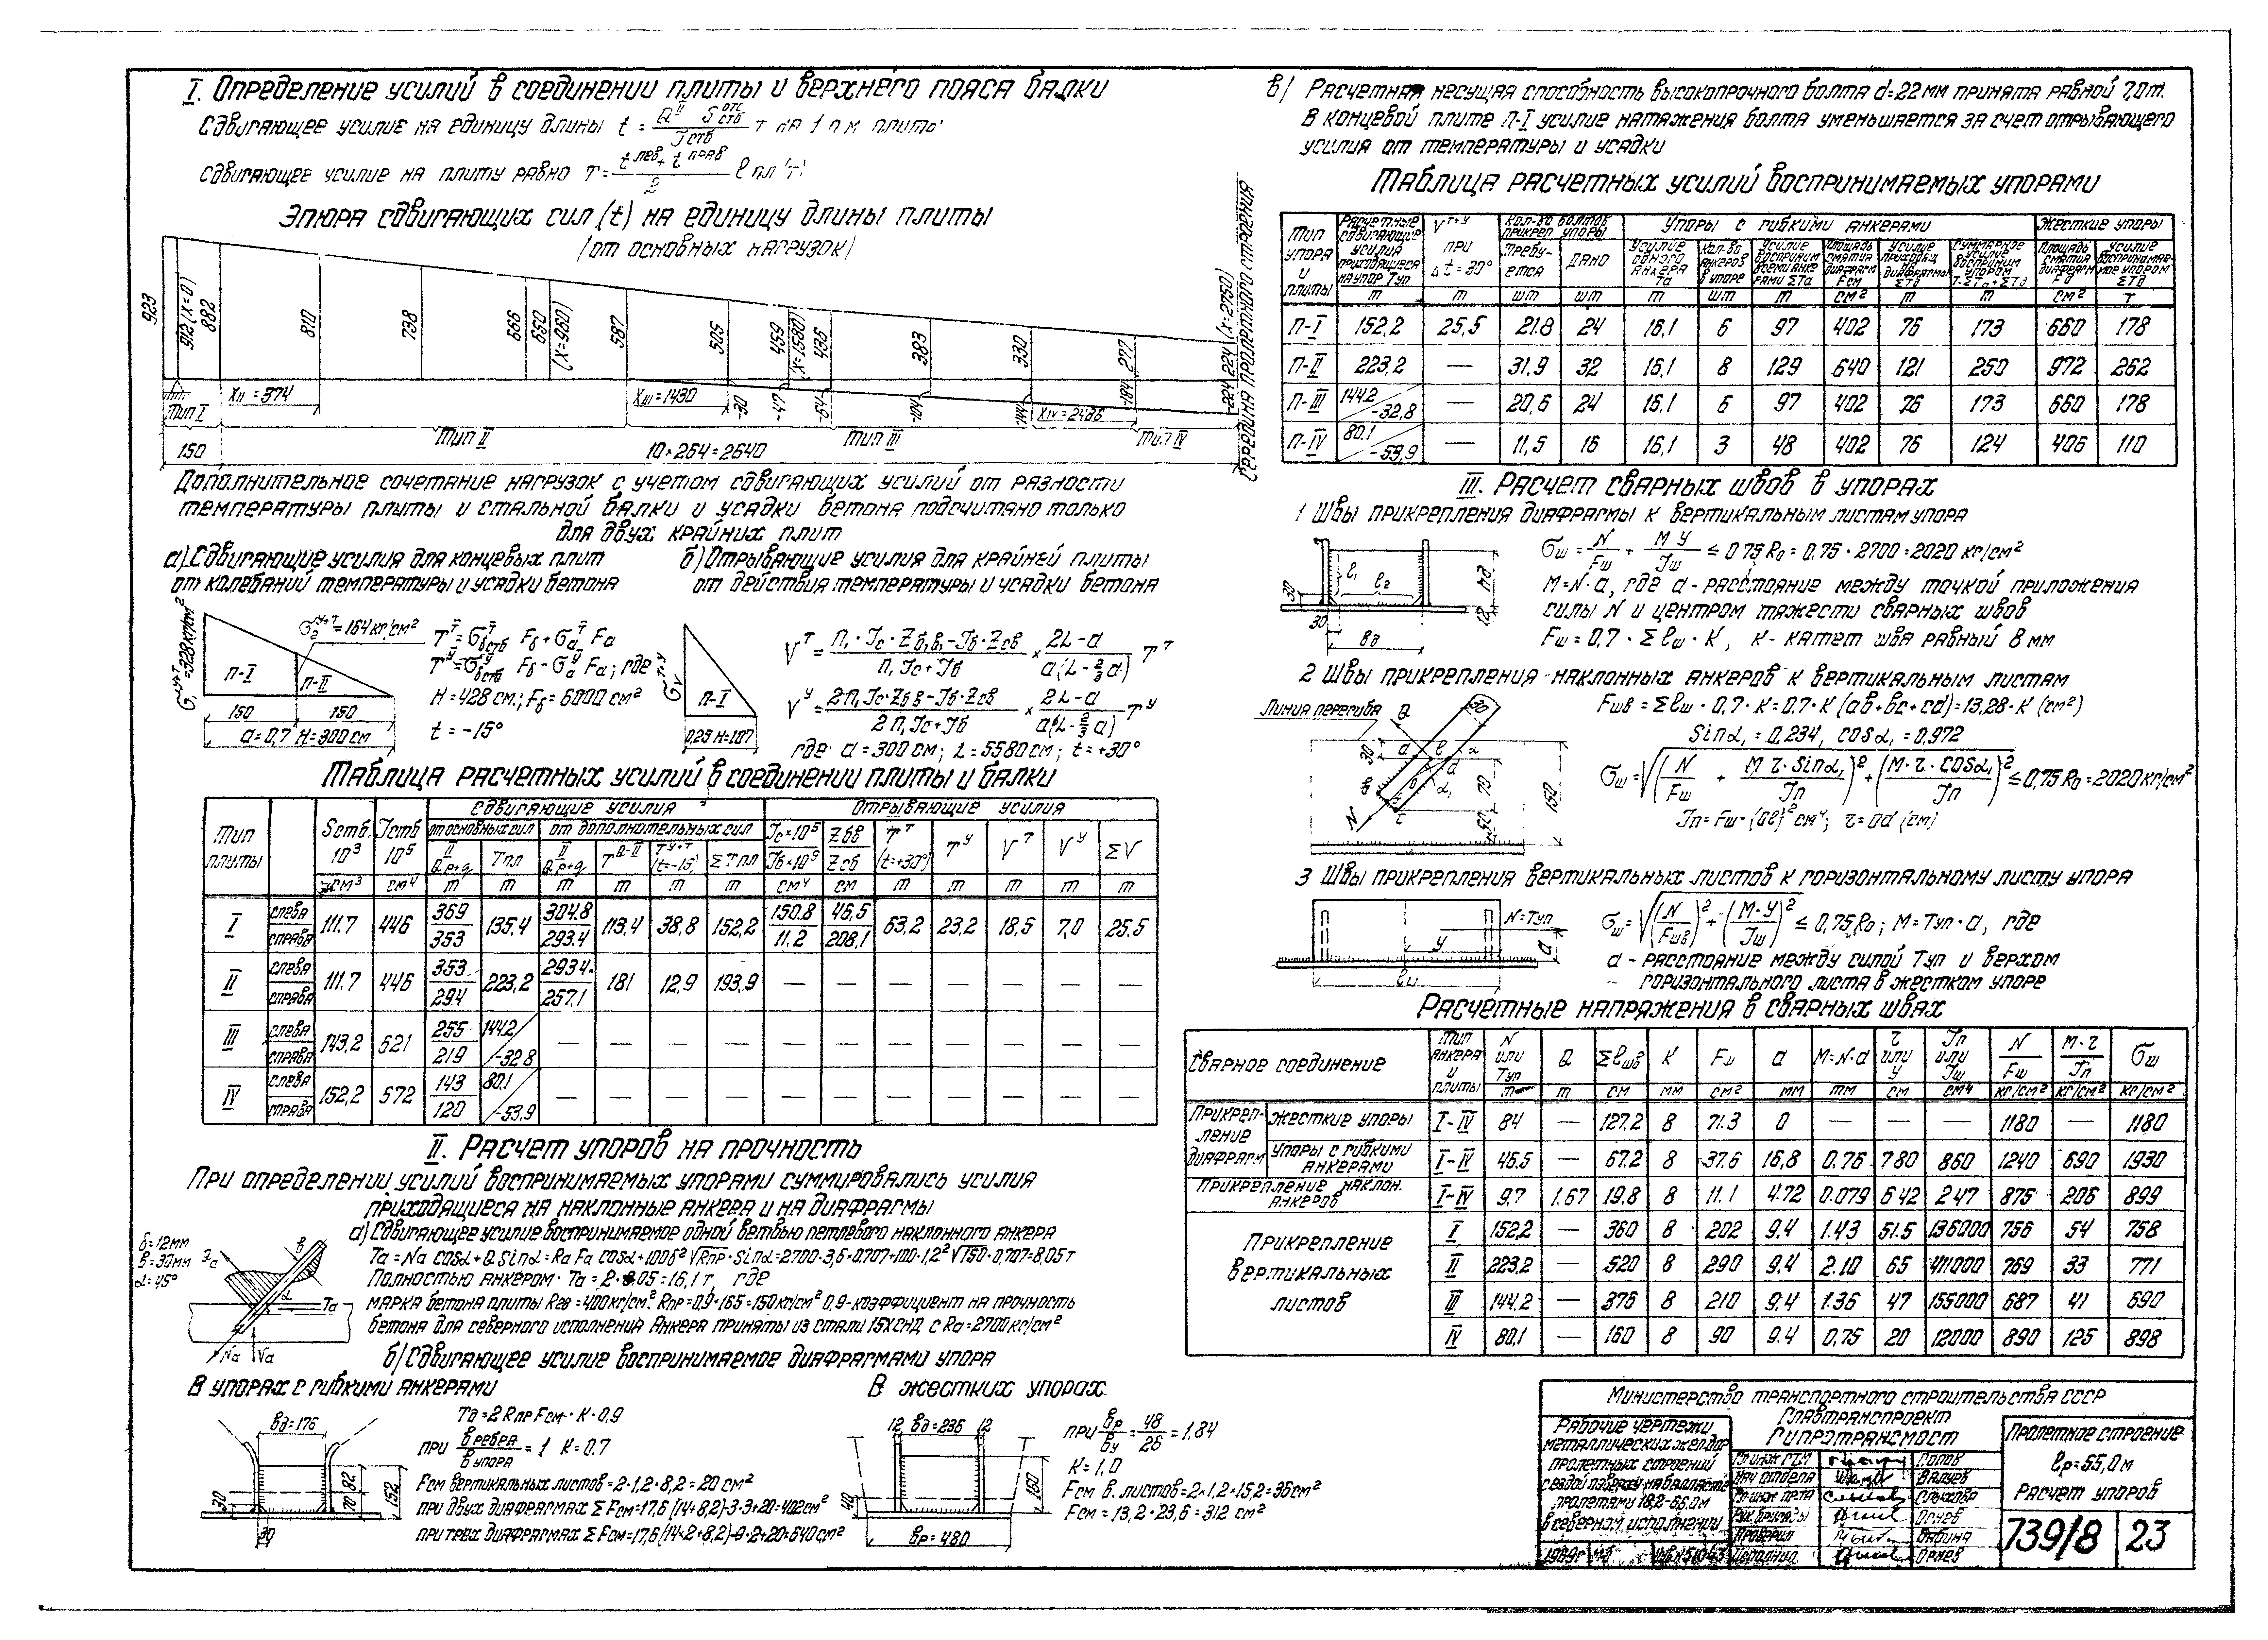 I. Определение усилий в соединении плиты и верхнего пояса балки
Сдвигающее усилие на единицу длины t = Q^II · S^отс стб / Jстб т на 1 п м плиты
Сдвигающее усилие на плиту равно T = (t лев + t прав) / 2 · ℓ пл (т)
Эпюра сдвигающих сил (t) на единицу длины плиты
(от основных нагрузок)
923 912 (X=0) 882 810 738 666 650 (X=960) 587 505 459 (X=1580) 436 383 330 277 224 (X=2750)
-30 -47 -64 -104 -144 -184 -224
XII = 374 XIII = 1430 XIV = 2486
Тип I Тип II Тип III Тип IV
150 10×264=2640
Середина пролетного строения
Дополнительное сочетание нагрузок с учетом сдвигающих усилий от разности
температуры плиты и стальной балки и усадки бетона подсчитано только
для двух крайних плит
а) Сдвигающие усилия для концевых плит
от колебаний температуры и усадки бетона
σ₁^у+т = 328 кг/см²
σ₂^у+т = 164 кг/см²
П-I П-II
150 150
a = 0,7 H = 300 см
T^т = σ^т б стб Fб + σ^т а Fа
T^у = σ^у б стб Fб − σ^у а Fа; где
H = 428 см; Fб = 6000 см²
t = −15°
б) Отрывающие усилия для крайней плиты
от действия температуры и усадки бетона
П-I
0,25 H = 107
V^т = (n₁ Jс · Zбв − Jб · Zсв) / (n₁ Jс + Jб) × (2L − a) / (a(L − 2/3 a)) T^т
V^у = (2n₁ Jс · Zбв − Jб · Zсв) / (2n₁ Jс + Jб) × (2L − a) / (a(L − 2/3 a)) T^у
где a = 300 см; L = 5580 см; t = +30°
Таблица расчетных усилий в соединении плиты и балки
Тип плиты | Sстб. 10³ | Jстб 10⁵ | Сдвигающие усилия | Отрывающие усилия
от основных сил | от дополнительных сил
Q^II р+q | Тпл | Q^II р+q | T^Q-II | T^у+т (t=-15°) | ΣТпл | Jс×10⁵ / Jб×10⁵ | Zбв / Zсб | T^т (t=+30°) | T^у | V^т | V^у | ΣV
см³ | см⁴ | т | т | т | т | т | т | см⁴ | см | т | т | т | т | т
I | слева справа | 111.7 | 446 | 369 / 353 | 135.4 | 304.8 / 293.4 | 113,4 | 38,8 | 152,2 | 150.8 / 11.2 | 46,5 / 208,1 | 63,2 | 23,2 | 18,5 | 7,0 | 25.5
II | слева справа | 111.7 | 446 | 353 / 294 | 223,2 | 293.4 / 257.1 | 181 | 12,9 | 193,9 | — | — | — | — | — | — | —
III | слева справа | 143,2 | 521 | 255 / 219 | 144.2 / -32.8 | — | — | — | — | — | — | — | — | — | — | —
IV | слева справа | 152,2 | 572 | 143 / 120 | 80.1 / -53,9 | — | — | — | — | — | — | — | — | — | — | —
II. Расчет упоров на прочность
При определении усилий воспринимаемых упорами суммировались усилия
приходящиеся на наклонные анкера и на диафрагмы
а) Сдвигающее усилие воспринимаемое одной ветвью петлевого наклонного анкера
δ=12мм
b=30мм
α=45°
Tа Nа Vа
Tа = Nа cosα + Q sinα = Rа Fа cosα + 100δ² √Rпр · sinα = 2700·3,6·0.707+100·1,2² √150·0,707=8,05 т
Полностью анкером Tа = 2·8.05 = 16,1 т, где
марка бетона плиты R28 = 400 кг/см². Rпр = 0,9·165 = 150 кг/см² 0,9-коэффициент на прочность
бетона для северного исполнения Анкера приняты из стали 15ХСНД с Rа = 2700 кг/см²
б) Сдвигающее усилие воспринимаемое диафрагмами упора
В упорах с гибкими анкерами
bд=176
30 70 82 152 30
Tд = 2 Rпр Fсм · K · 0,9
при b ребра / b упора = 1 K = 0,7
Fсм вертикальных листов = 2·1,2·8,2 = 20 см²
при двух диафрагмах ΣFсм = 17,6 (14+8,2)-3·3+20=402 см²
при трех диафрагмах ΣFсм = 17,6 (14·2+8,2)-9·2+20=640 см²
В жестких упорах
12 bд=236 12
40 160
bр = 480
при bр / bу = 48 / 26 = 1.84
K = 1,0
Fсм в. листов = 2×1,2×15,2 = 36 см²
Fсм = 13,2×23,6 = 312 см²
в) Расчетная несущая способность высокопрочного болта d=22 мм принята равной 7,0 т.
В концевой плите П-I усилие натяжения болта уменьшается за счет отрывающего
усилия от температуры и усадки
Таблица расчетных усилий воспринимаемых упорами
Тип упора и плиты | Расчетные сдвигающие усилия приходящиеся на упор Туп | V^т+у при Δt=30° | Кол-во болтов прикреп. упоры | Упоры с гибкими анкерами | Жесткие упоры
Требуется | Дано | Усилие одного анкера Tа | Кол-во анкеров в упоре | Усилие восприним. всеми анкерами ΣTа | Площадь смятия диафрагм Fсм | Усилие приходящ. на диафрагмы ΣTд | Суммарное усилие восприним. упором T=ΣTа+ΣTд | Площадь смятия диафрагм Fд | Усилие воспринимаемое упором ΣTд
т | т | шт | шт | т | шт | т | см² | т | т | см² | т
П-I | 152,2 | 25,5 | 21.8 | 24 | 16,1 | 6 | 97 | 402 | 76 | 173 | 660 | 178
П-II | 223,2 | — | 31.9 | 32 | 16,1 | 8 | 129 | 640 | 121 | 250 | 972 | 262
П-III | 144.2 / -32,8 | — | 20,6 | 24 | 16,1 | 6 | 97 | 402 | 76 | 173 | 660 | 178
П-IV | 80.1 / -53,9 | — | 11,5 | 16 | 16,1 | 3 | 48 | 402 | 76 | 124 | 406 | 110
III. Расчет сварных швов в упорах
1 Швы прикрепления диафрагмы к вертикальным листам упора
30 30 ℓ₁ ℓ₂ bд 12
σш = N / Fш + M У / Jш ≤ 0.75 R₀ = 0.75 · 2700 = 2020 кг/см²
M = N·a, где a - расстояние между точкой приложения
силы N и центром тяжести сварных швов
Fш = 0,7 · Σℓш · K, K - катет шва равный 8 мм
2 Швы прикрепления наклонных анкеров к вертикальным листам
Линия перегиба
Q N 30 70 50 150
Fшв = Σℓш · 0,7 · K = 0.7 · K (ab+bc+cd) = 13,28 · K (см²)
Sinα₁ = 0,234, cosα₁ = 0,972
σш = √((N / Fш + M·r·sinα₁ / Jп)² + (M·r·cosα₁ / Jп)²) ≤ 0,75 R₀ = 2020 кг/см²
Jп = Fш · (0r)² см⁴; r = 0d (см)
3 Швы прикрепления вертикальных листов к горизонтальному листу упора
N=Туп у a
σш = √((N / Fшв)² + (M·У / Jш)²) ≤ 0,75 R₀; M = Туп · a, где
a - расстояние между силой Туп и верхом
горизонтального листа в жестком упоре
Расчетные напряжения в сварных швах
Сварное соединение | Тип анкера и плиты | N или Туп | Q | Σℓшв | K | Fш | a | M=N·a | r или У | Jп или Jш | N / Fш | M·r / Jп | σш
т | т | см | мм | см² | мм | тм | см | см⁴ | кг/см² | кг/см² | кг/см²
Прикрепление диафрагм | Жесткие упоры | I-IV | 84 | — | 127.2 | 8 | 71.3 | 0 | — | — | — | 1180 | — | 1180
Упоры с гибкими анкерами | I-IV | 46.5 | — | 67.2 | 8 | 37.6 | 16,8 | 0.76 | 780 | 860 | 1240 | 690 | 1930
Прикрепление наклон. анкеров | I-IV | 9,7 | 1.67 | 19.8 | 8 | 11.1 | 4.72 | 0.079 | 6 42 | 2 47 | 875 | 206 | 899
Прикрепление вертикальных листов | I | 152,2 | — | 360 | 8 | 202 | 9.4 | 1.43 | 51.5 | 136000 | 756 | 54 | 758
II | 223,2 | — | 520 | 8 | 290 | 9.4 | 2.10 | 65 | 411000 | 769 | 33 | 771
III | 144.2 | — | 376 | 8 | 210 | 9.4 | 1.36 | 47 | 155000 | 687 | 41 | 690
IV | 80,1 | — | 160 | 8 | 90 | 9.4 | 0,75 | 20 | 12000 | 890 | 125 | 898
Министерство транспортного строительства СССР
Главтранспроект
Гипротрансмост
Рабочие чертежи
металлических ж.дор.
пролетных строений
с ездой поверху на балласте
пролетами 18,2-55.0м
в северном исполнении
Гл инж ГТМ Попов
Нач отдела Валуев
Гл инж пр-та
Рук. бригады
Проверил
Исполнил
Пролетное строение
ℓр = 55,0 м
Расчет упоров
739/8 23